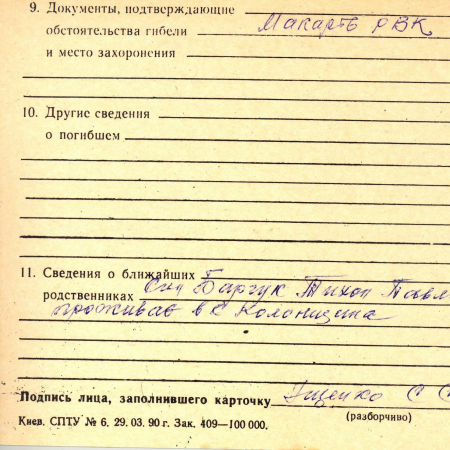 9. Документы, подтверждающие
обстоятельства гибели Макарів РВК
и место захоронения
10. Другие сведения
о погибшем
11. Сведения о ближайших
родственниках Син Барчук Тихон Павл
проживає в с Колонщина
Подпись лица, заполнившего карточку Іщенко С С
(разборчиво)
Киев, СПТУ № 6. 29. 03. 90 г. Зак. 409—100 000.